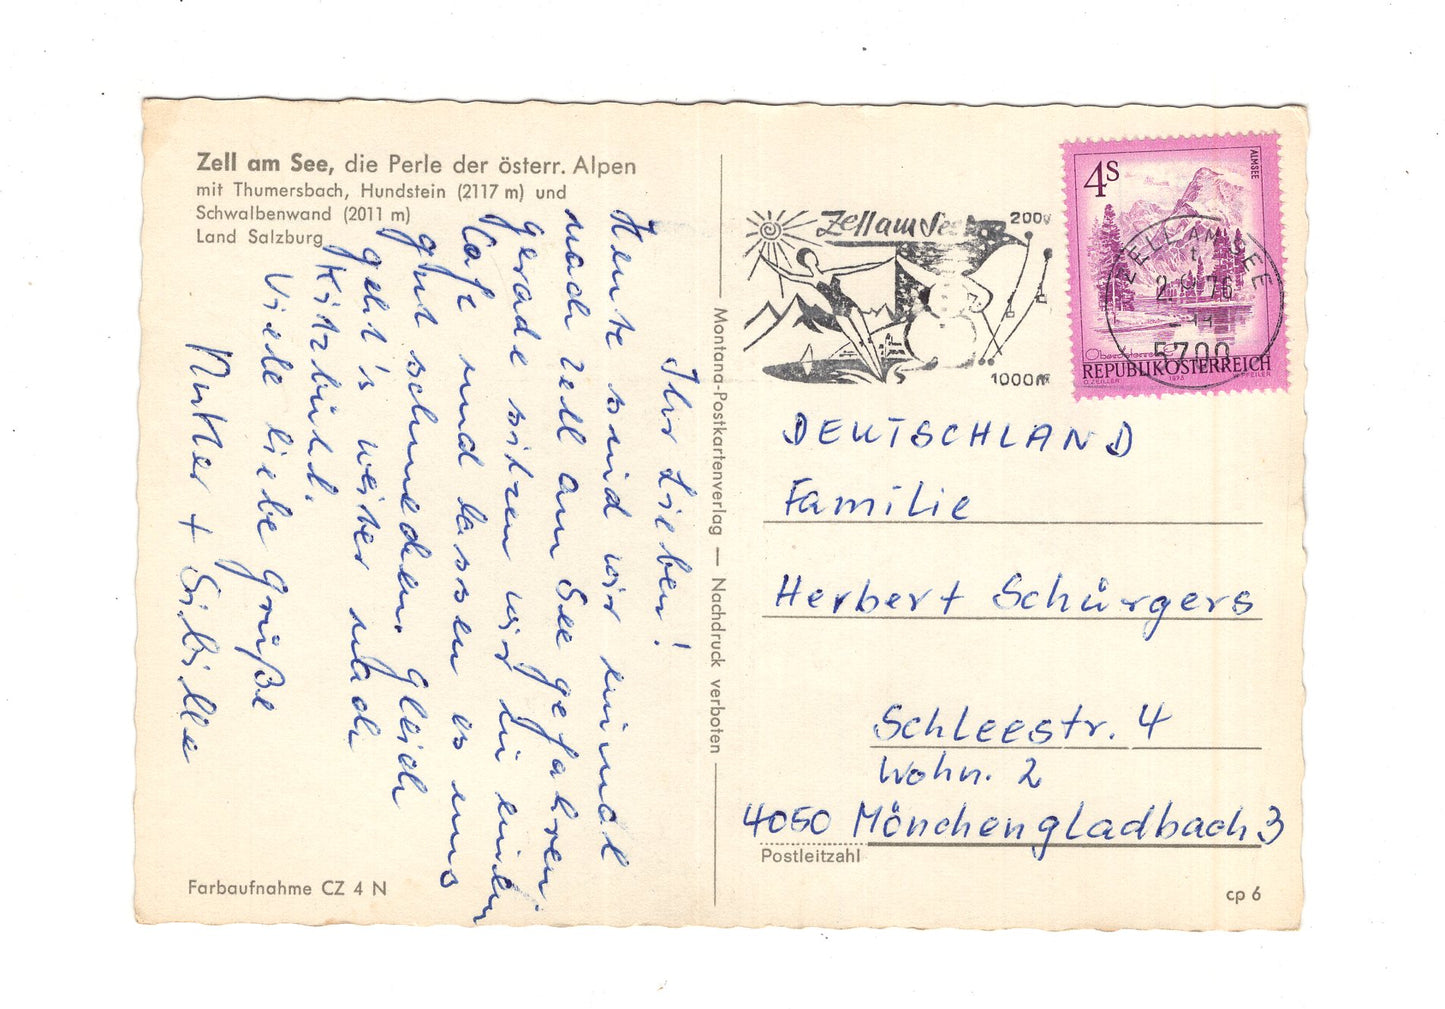 Zell am See, die Perle der österr. Alpen
mit Thumersbach, Hundstein (2117 m) und
Schwalbenwand (2011 m)
Land Salzburg
Ihr Lieben!
Heute sind wir einmal
nach Zell am See gefahren
gerade sitzen wir in einem
Kaffe und lassen es uns
gut schmecken. Gleich
geht's weiter nach
Kitzbühl.
Viele liebe Grüße
Mutter + Sibille
Farbaufnahme CZ 4 N
Montana-Postkartenverlag — Nachdruck verboten
Zell am See
2000
1000m
4S
ALMSEE
REPUBLIK ÖSTERREICH
O. ZEILLER 1975 W. PFEILER
ZELL AM SEE
76
5700
DEUTSCHLAND
Familie
Herbert Schürgers
Schleestr. 4
Wohn. 2
4050 Mönchengladbach 3
Postleitzahl
cp 6